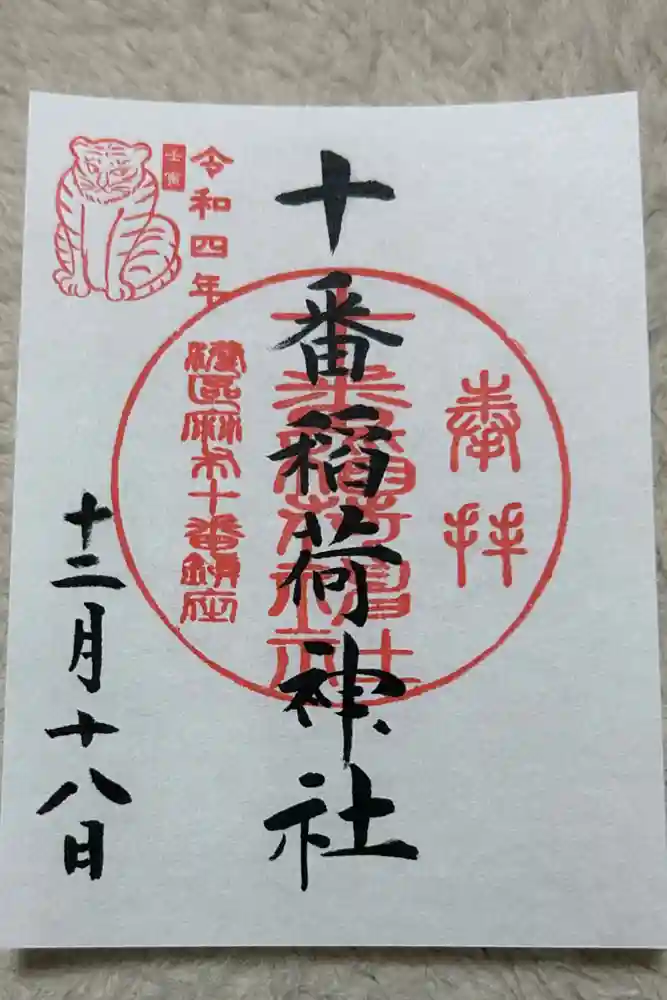 奉拝
十番稲荷神社
令和四年
壬寅
港區麻布十番鎮座
十二月十八日